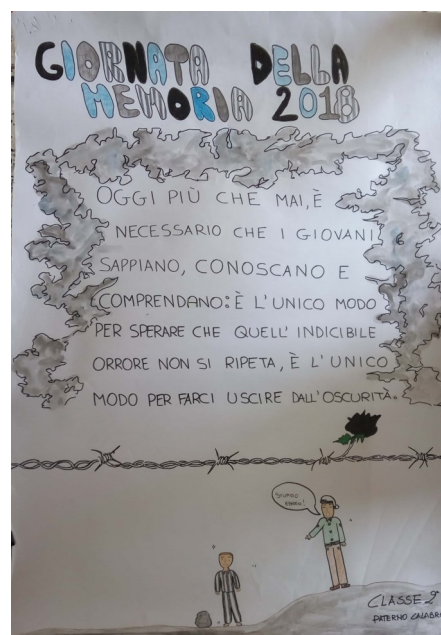 GIORNATA DELLA
MEMORIA 2018
OGGI PIÙ CHE MAI, È
NECESSARIO CHE I GIOVANI
SAPPIANO, CONOSCANO E
COMPRENDANO: È L'UNICO MODO
PER SPERARE CHE QUELL' INDICIBILE
ORRORE NON SI RIPETA, È L'UNICO
MODO PER FARCI USCIRE DALL'OSCURITÀ.
STUPIDO
EBREO!
CLASSE 2ª
PATERNO CALABRO